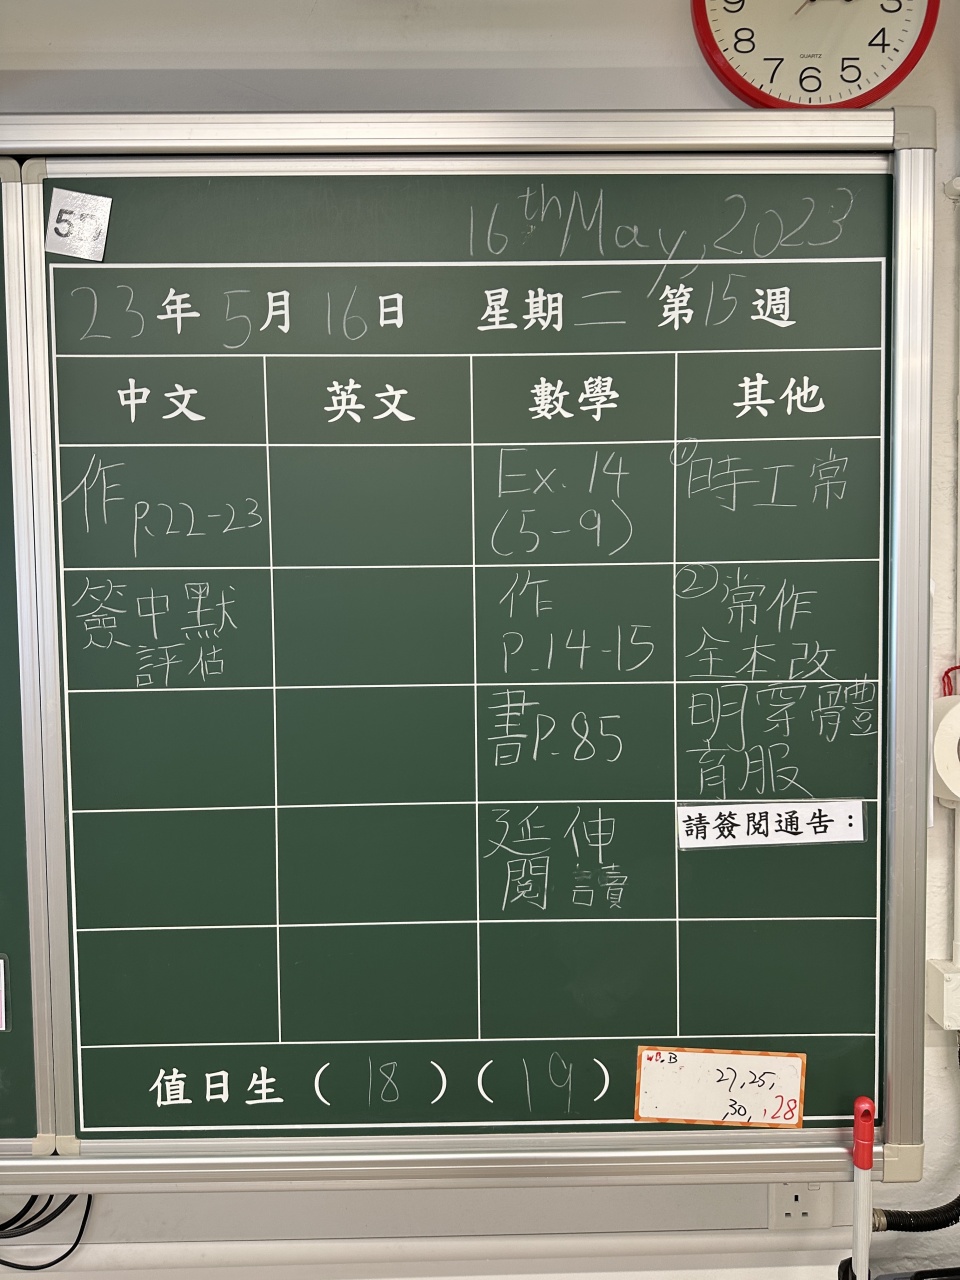 9
3
8
4
QUARTZ
7 6 5
16th May, 2023
23年5月16日 星期二 第15週
中文 英文 數學 其他
作 P.22-23
簽中默
評估
Ex. 14
(5-9)
作
P.14-15
書P.85
延伸
閱讀
①時工常
②常作
全本改
明穿體
育服
請簽閱通告：
值日生（18）（19）
27,25,
,30,,28